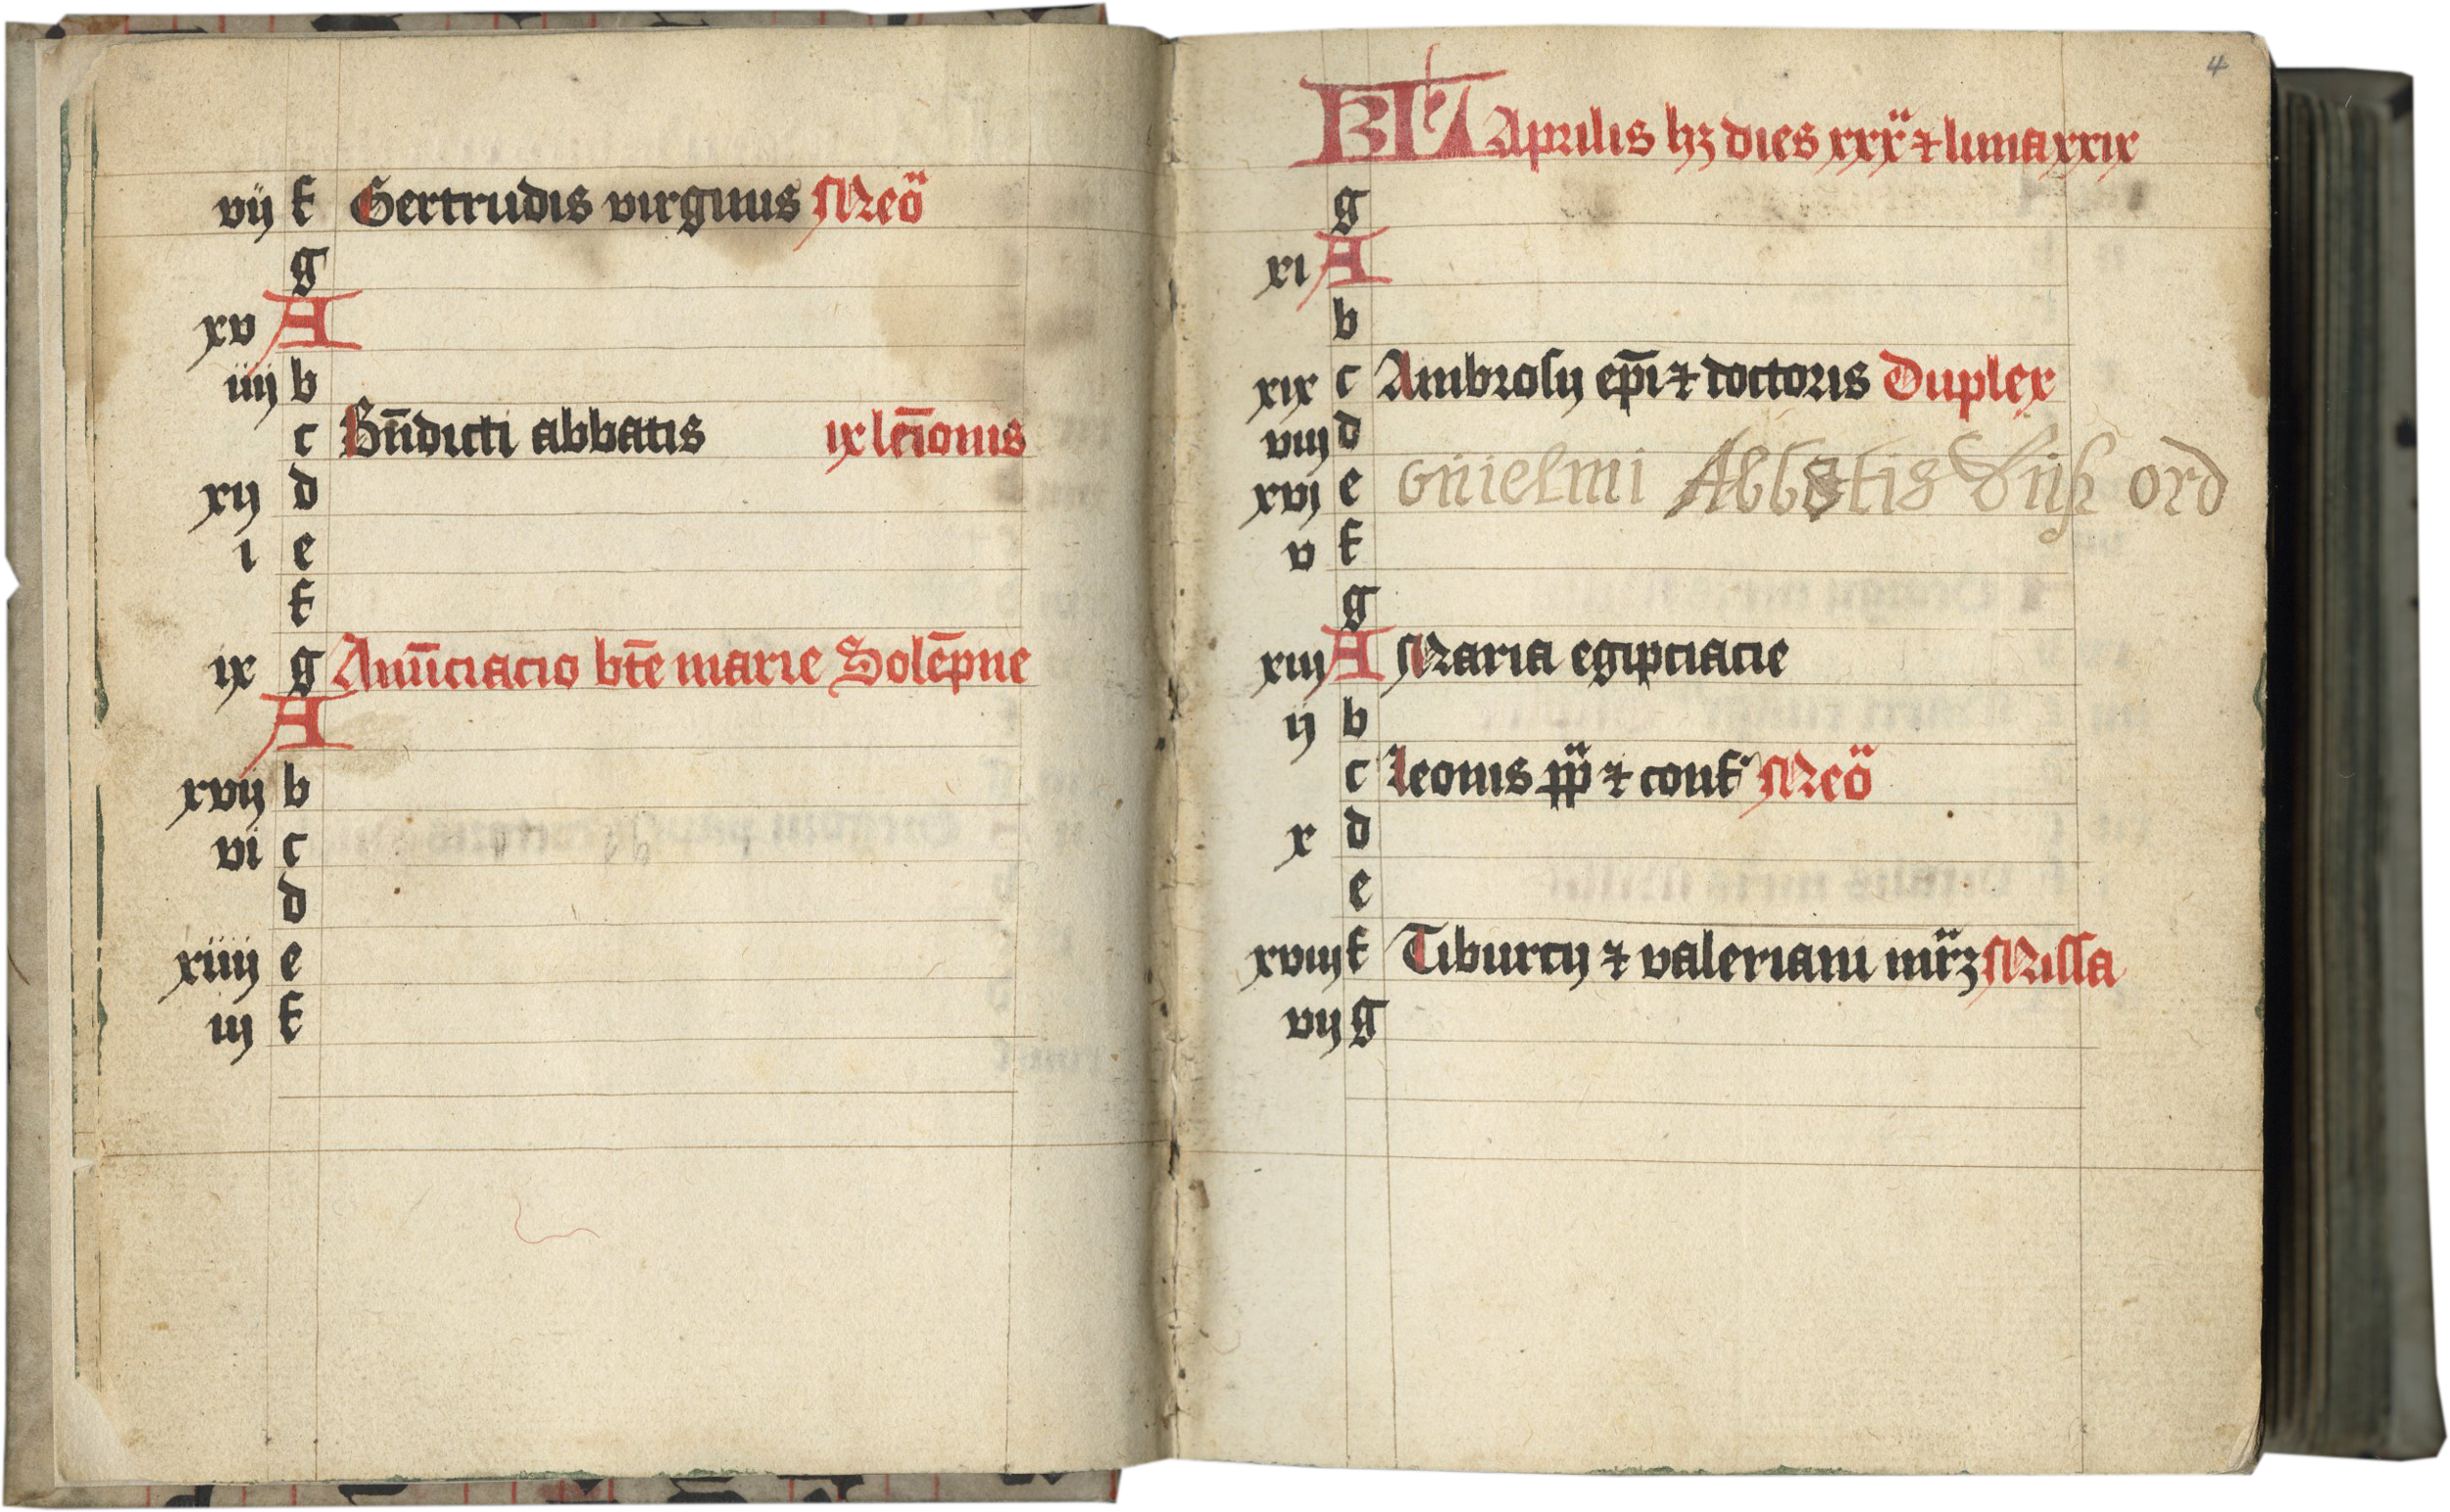 vij f Gertrudis virginis Meō
g
xv A
iiij b
c Bn̄dicti abbatis ix lc̄ionis
xij d
i e
f
ix g Anūciacio btē marie Solēpne
A
xvij b
vi c
d
xiiij e
iij f
4
KL Aprilis hꝫ dies xxx ⁊ luna xxix
g
xi A
b
xix c Ambrosij ep̄i ⁊ doctoris Duplex
viij d
xvj e Guielmi Abbatis ord
v f
g
xiij A Maria egipciacie
ij b
c Leonis pp̄ ⁊ conf Meō
x d
e
xviij f Tiburcij ⁊ valeriani mr̄ꝫ Missa
vij g